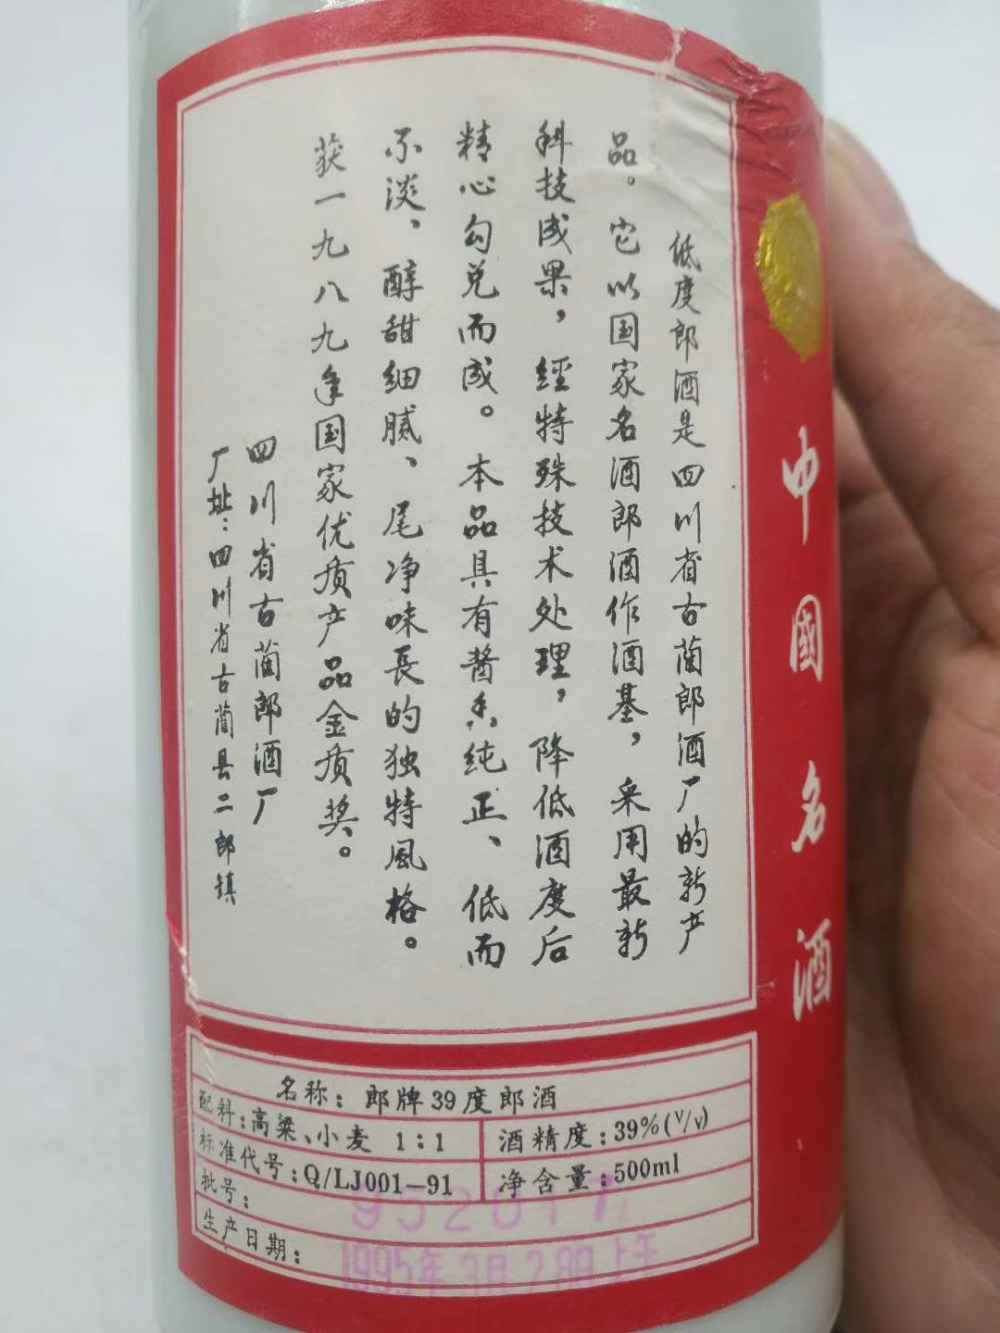 低度郎酒是四川省古蔺郎酒厂的新产
品。它以国家名酒郎酒作酒基，采用最新
科技成果，經特殊技术处理，降低酒度后
精心勾兑而成。本品具有酱香纯正、低而
不淡、醇甜细腻、尾净味長的独特風格。
获一九八九年国家优质产品金质奖。
四川省古蔺郎酒厂
厂址：四川省古蔺县二郎镇
中國名酒
名称：郎牌39度郎酒
配料：高粱、小麦 1：1
酒精度：39%(V/V)
标准代号：Q/LJ001-91
净含量：500ml
批号：
生产日期：1995年3月28日